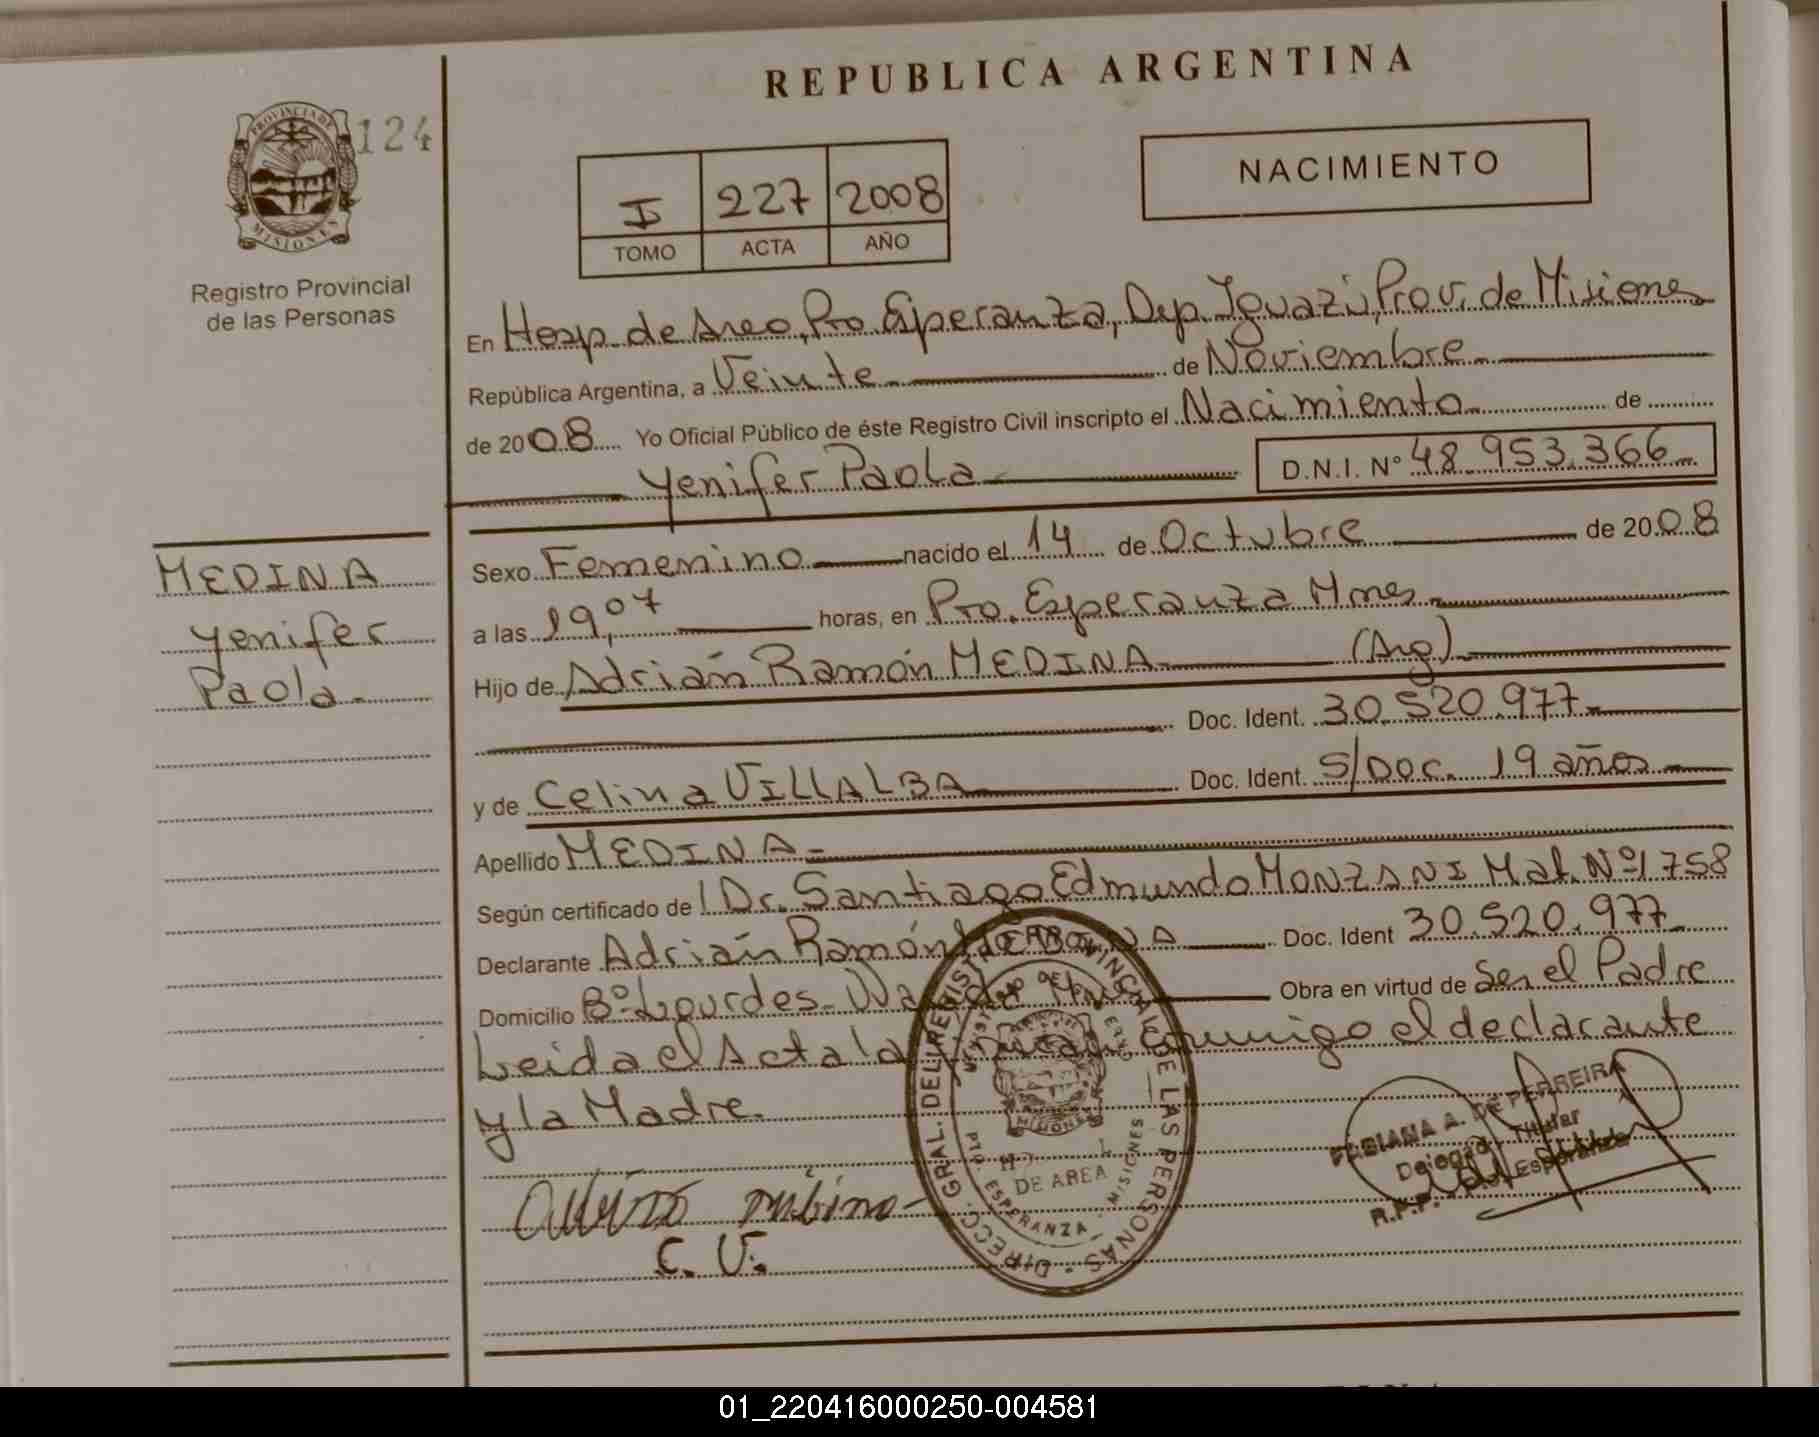 REPUBLICA ARGENTINA
PROVINCIA DE
MISIONES
124
Registro Provincial
de las Personas
I 227 2008
TOMO ACTA AÑO
NACIMIENTO
En Hosp. de Area, Pto Esperanza, Dep. Iguazú, Prov. de Misiones
República Argentina, a Veinte de Noviembre
de 2008 Yo Oficial Público de éste Registro Civil inscripto el Nacimiento de
Yenifer Paola D.N.I. Nº 48.953.366
MEDINA
Yenifer
Paola
Sexo Femenino nacido el 14 de Octubre de 2008
a las 19,07 horas, en Pto. Esperanza Mnes
Hijo de Adrián Ramón MEDINA (Arg)
Doc. Ident. 30.520.977
y de Celina VILLALBA Doc. Ident. S/DOC. 19 años
Apellido MEDINA
Según certificado de l Dr. Santiago Edmundo MONZANI Mat. Nº 1758
Declarante Adrián Ramón MEDINA Doc. Ident 30.520.977
Domicilio Bº Lourdes- Wanda Obra en virtud de Ser el Padre
Leida el Acta la conmigo el declarante
y la Madre.
DIRECC. GRAL. DEL REGISTRO PROVINCIAL DE LAS PERSONAS
MISIONES
DE AREA
PTO. ESPERANZA - MISIONES
FABIANA A. DE FERREIRA
Delegada Titular
R.P.P. Esperanza
C. V.
01_220416000250-004581